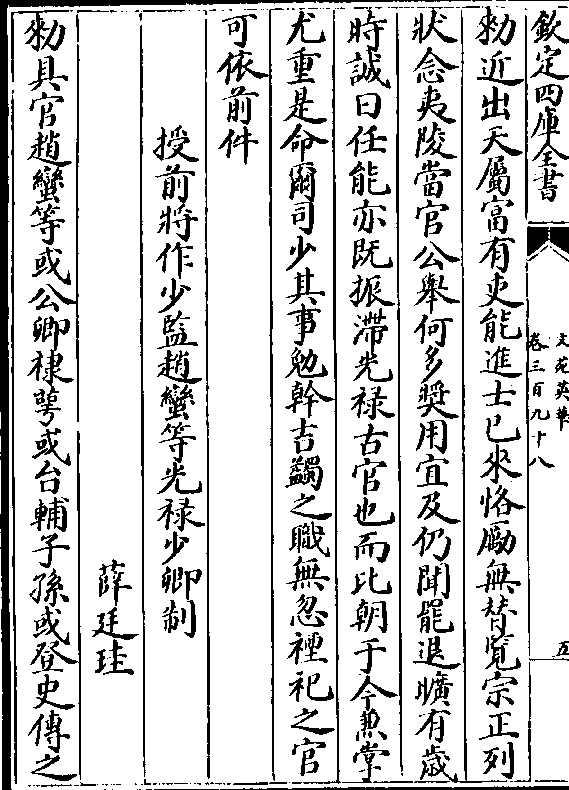 欽定四庫全書
文苑英華
卷三百九十八
五
勑近出天屬富有吏能進士已來恪勵無替覽宗正列
狀念夷陵當官公舉何多奬用宜及仍聞罷退曠有歲
時誠曰任能亦既振滯光禄古官也而比朝于今兼掌
尤重是命爾司少其事勉幹吉蠲之職無忽禋祀之官
可依前件
授前將作少監趙蠻等光禄少卿制
薛廷珪
勑具官趙蠻等或公卿棣萼或台輔子孫或登史傳之